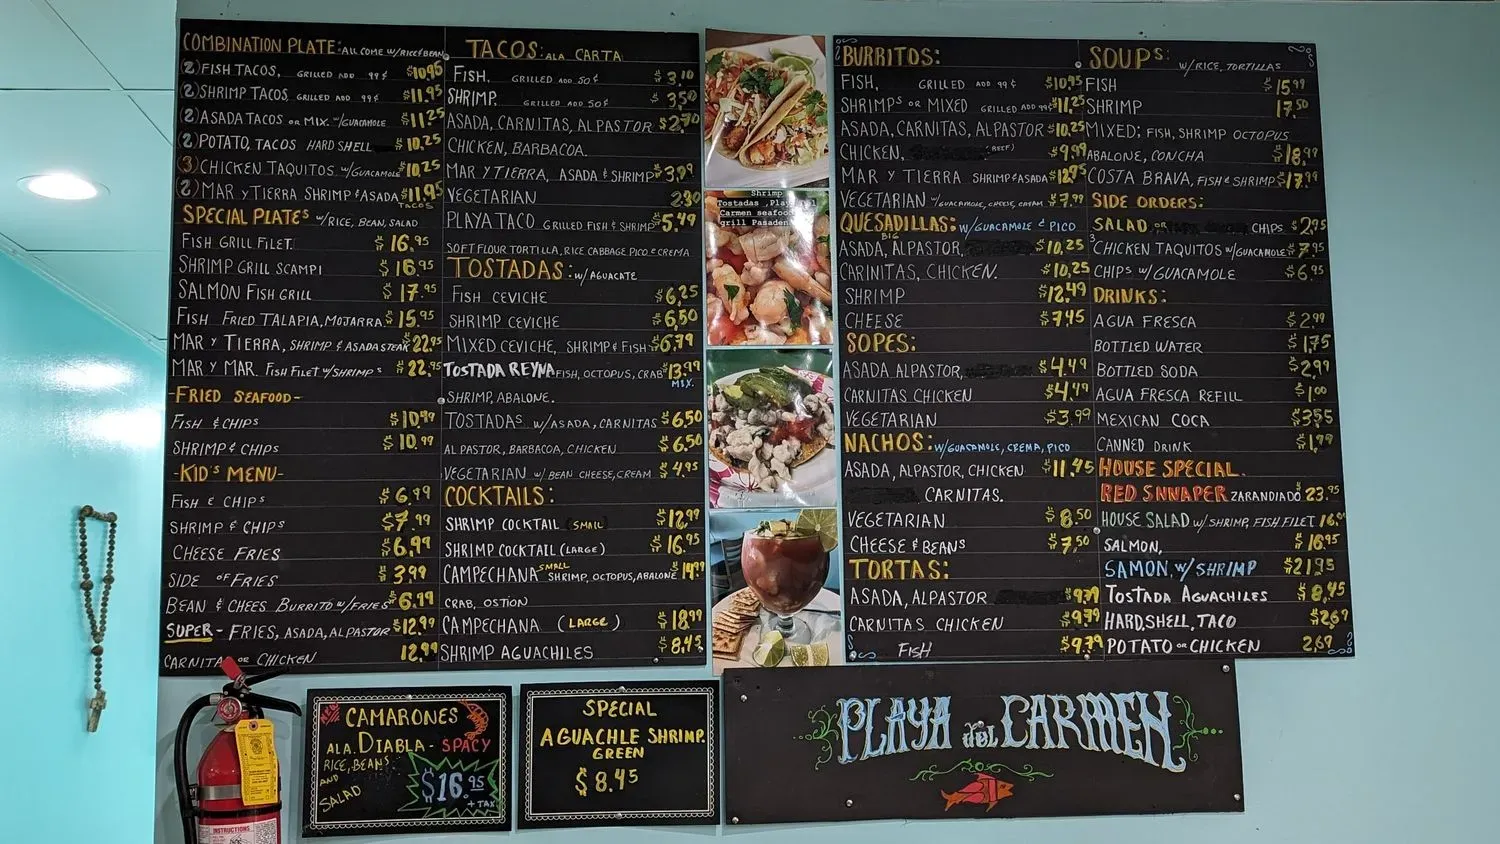 COMBINATION PLATE: ALL COME W/RICE & BEAN
(2) FISH TACOS, GRILLED ADD 99¢ $10.95
(2) SHRIMP TACOS, GRILLED ADD 99¢ $11.95
(2) ASADA TACOS OR MIX. W/GUACAMOLE $11.25
(2) POTATO, TACOS HARD SHELL $10.25
(3) CHICKEN TAQUITOS W/GUACAMOLE $10.25
(2) MAR Y TIERRA SHRIMP & ASADA $11.95
TACOS
SPECIAL PLATES W/RICE, BEAN, SALAD
FISH GRILL FILET. $16.95
SHRIMP GRILL SCAMPI $16.95
SALMON FISH GRILL $17.95
FISH FRIED TALAPIA, MOJARRA $15.95
MAR Y TIERRA, SHRIMP & ASADA STEAK 22.95
MAR Y MAR. FISH FILET W/SHRIMPS $22.95
-FRIED SEAFOOD-
FISH & CHIPS $10.99
SHRIMP & CHIPS $10.99
-KID'S MENU-
FISH & CHIPS $6.99
SHRIMP & CHIPS $7.99
CHEESE FRIES $6.99
SIDE OF FRIES $3.99
BEAN & CHEES BURRITO W/FRIES $6.99
SUPER- FRIES, ASADA, AL PASTOR $12.99
CARNITA OR CHICKEN 12.99
TACOS: ALA CARTA
FISH, GRILLED ADD 50¢ $3.10
SHRIMP, GRILLED ADD 50¢ $3.50
ASADA, CARNITAS, AL PASTOR $2.70
CHICKEN, BARBACOA.
MAR Y TIERRA, ASADA & SHRIMP $3.99
VEGETARIAN 2.30
PLAYA TACO GRILLED FISH & SHRIMP $5.49
SOFT FLOUR TORTILLA, RICE CABBAGE PICO & CREMA
TOSTADAS: W/AGUACATE
FISH CEVICHE $6.25
SHRIMP CEVICHE $6.50
MIXED CEVICHE, SHRIMP & FISH $6.79
TOSTADA REYNA FISH, OCTOPUS, CRAB $13.99
MIX.
SHRIMP, ABALONE.
TOSTADAS W/ASADA, CARNITAS $6.50
AL PASTOR, BARBACOA, CHICKEN $6.50
VEGETARIAN W/ BEAN CHEESE, CREAM $4.95
COCKTAILS:
SHRIMP COCKTAIL (SMALL) $12.99
SHRIMP COCKTAIL (LARGE) $16.95
CAMPECHANA SMALL SHRIMP, OCTOPUS, ABALONE 14.99
CRAB, OSTION
CAMPECHANA (LARGE) $18.99
SHRIMP AGUACHILES $8.45
Shrimp
Tostadas ,Playa del
Carmen seafood
grill Pasadena
BURRITOS:
FISH, GRILLED ADD 99¢ $10.95
SHRIMPS OR MIXED GRILLED ADD 99¢ $11.25
ASADA, CARNITAS, AL PASTOR $10.25
CHICKEN, (BEEF) $9.99
MAR Y TIERRA SHRIMP & ASADA $12.95
VEGETARIAN W/GUACAMOLE, CHEESE, CREAM $7.99
QUESADILLAS: W/GUACAMOLE & PICO
BIG
ASADA, AL PASTOR, $10.25
CARINITAS, CHICKEN. $10.25
SHRIMP $12.49
CHEESE $7.45
SOPES:
ASADA AL PASTOR, $4.49
CARNITAS CHICKEN $4.49
VEGETARIAN $3.99
NACHOS: W/GUACAMOLE, CREMA, PICO
ASADA, AL PASTOR, CHICKEN $11.45
CARNITAS.
VEGETARIAN $8.50
CHEESE & BEANS $7.50
TORTAS:
ASADA, AL PASTOR $9.79
CARNITAS CHICKEN $9.79
FISH $9.79
SOUPS: W/RICE, TORTILLAS
FISH $15.99
SHRIMP 17.50
MIXED; FISH, SHRIMP OCTOPUS
ABALONE, CONCHA $18.99
COSTA BRAVA, FISH & SHRIMP $17.99
SIDE ORDERS:
SALAD, CHIPS $2.95
3 CHICKEN TAQUITOS W/GUACAMOLE $7.95
CHIPS W/GUACAMOLE $6.95
DRINKS:
AGUA FRESCA $2.99
BOTTLED WATER $1.75
BOTTLED SODA $2.99
AGUA FRESCA REFILL $1.00
MEXICAN COCA $3.55
CANNED DRINK $1.99
HOUSE SPECIAL.
RED SNNAPER ZARANDIADO $23.95
HOUSE SALAD W/SHRIMP, FISH FILET 16.
SALMON, $16.95
SAMON, W/SHRIMP $21.95
TOSTADA AGUACHILES $8.45
HARD, SHELL, TACO $2.69
POTATO OR CHICKEN 2.69
CAMARONES
ALA. DIABLA - SPACY
RICE, BEANS
AND
SALAD
$16.95
+ TAX
SPECIAL
AGUACHLE SHRIMP.
GREEN
$8.45
PLAYA del CARMEN
INSTRUCTIONS